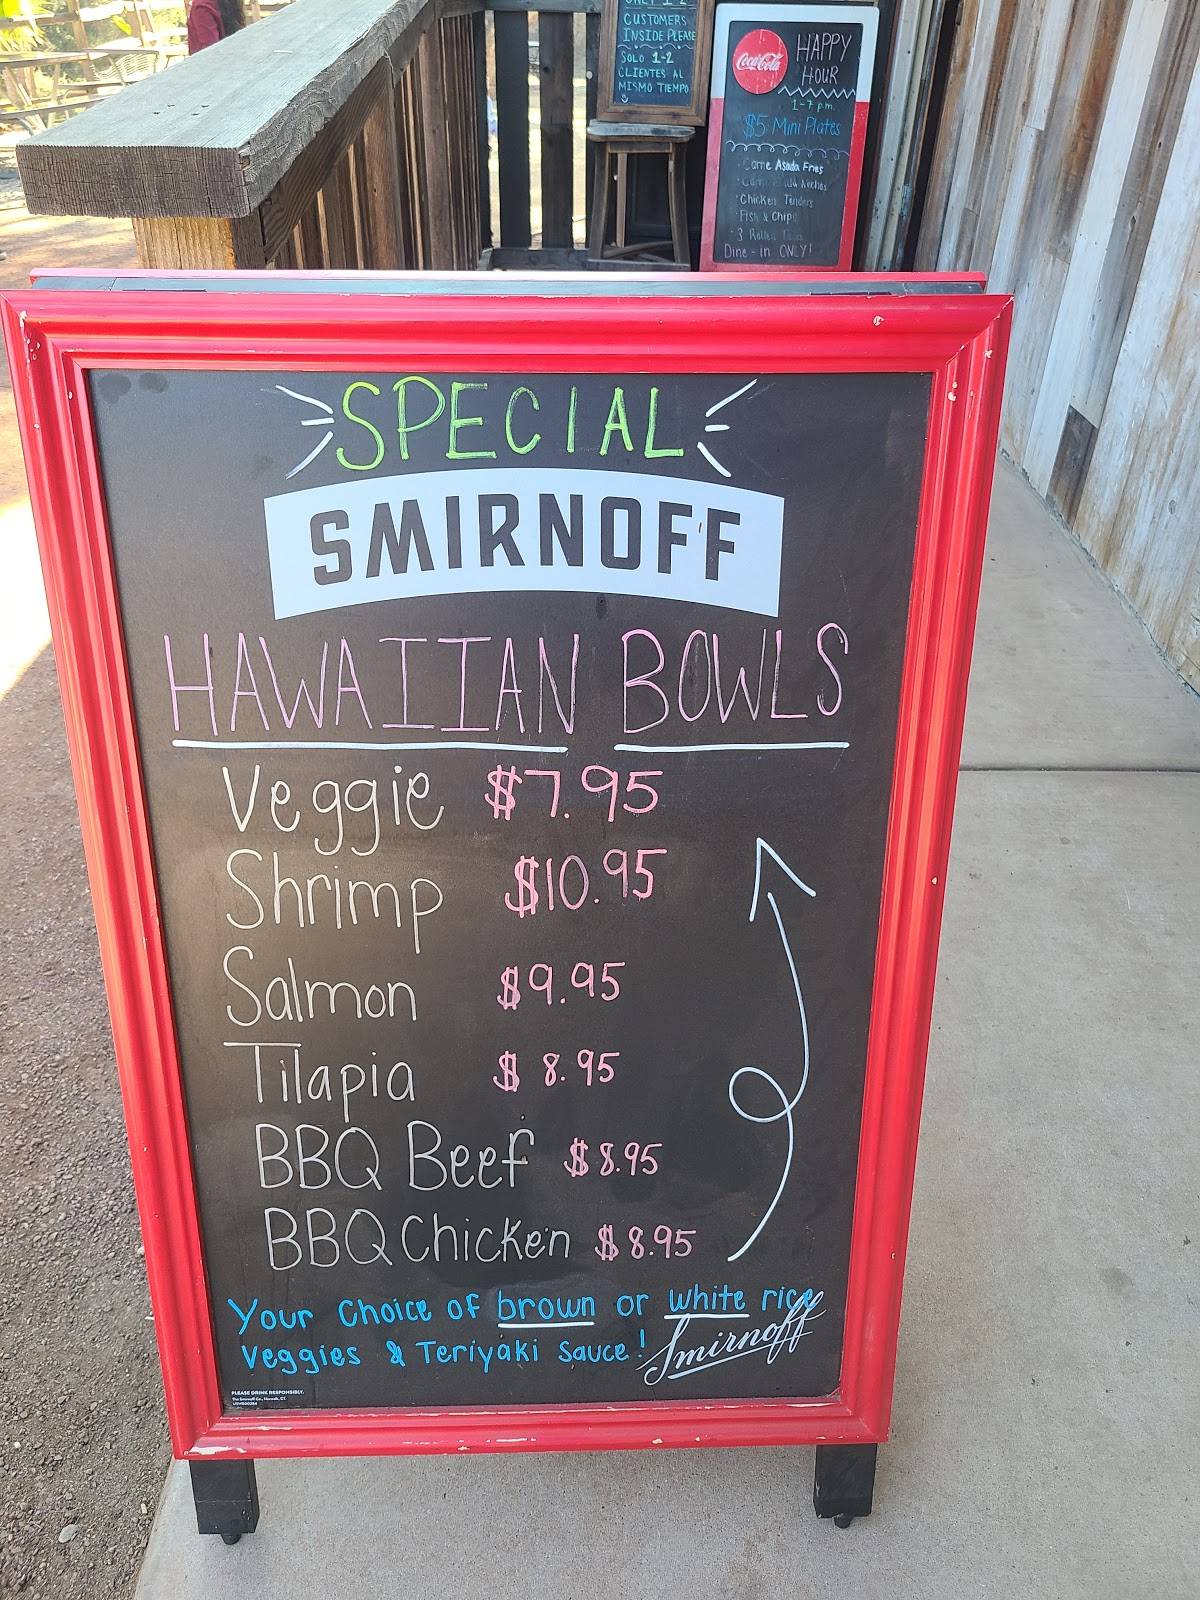 CUSTOMERS
INSIDE PLEASE
SOLO 1-2
CLIENTES AL
MISMO TIEMPO
Coca-Cola
HAPPY
HOUR
1-7 p.m.
$5 Mini Plates
Carne Asada Fries
Nachos
Chicken Tenders
Fish & Chips
3 Rolled
Dine-in ONLY!
SPECIAL
SMIRNOFF
HAWAIIAN BOWLS
Veggie $7.95
Shrimp $10.95
Salmon $9.95
Tilapia $8.95
BBQ Beef $8.95
BBQ Chicken $8.95
Your Choice of brown or white rice
Veggies & Teriyaki Sauce!
Smirnoff
PLEASE DRINK RESPONSIBLY.
The Smirnoff Co., Norwalk, CT.